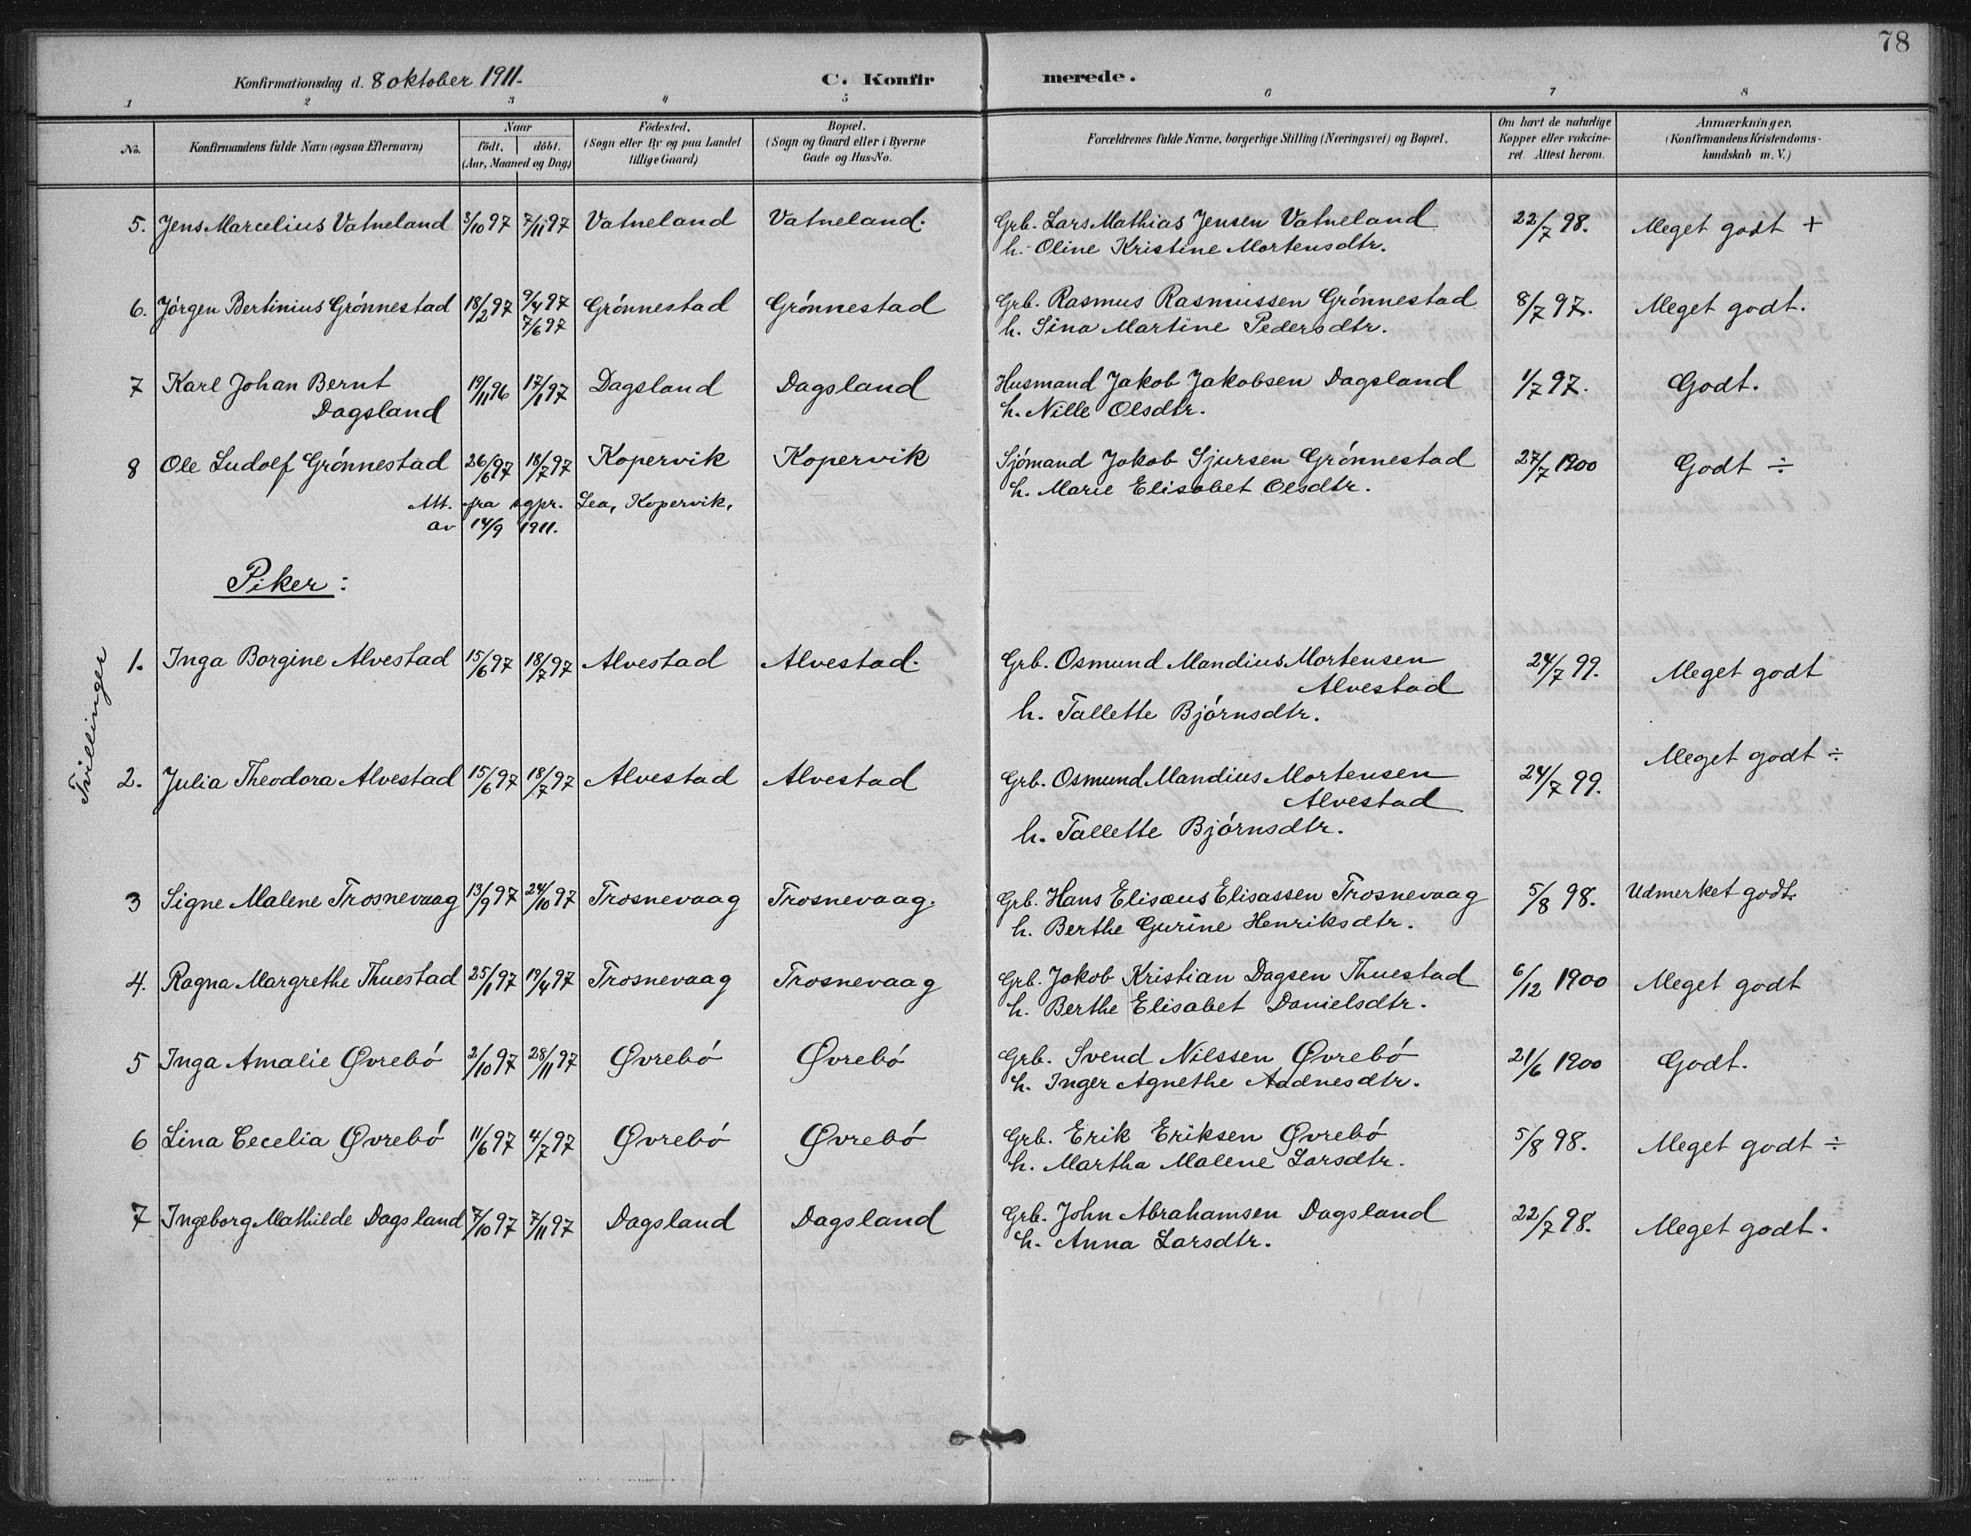 78
Konfirmationsdag d. 8 oktober 1911.
C. Konfirmerede.
1 2 3 4 5 6 7 8
No. Konfirmandens fulde Navn (ogsaa Efternavn) Naar født, døbt. (Aar, Maaned og Dag) Fødested. (Sogn eller By og paa Landet tillige Gaard) Bopæl. (Sogn og Gaard eller i Byerne Gade og Hus-No. Forældrenes fulde Navne, borgerlige Stilling (Næringsvei) og Bopæl. Om havt de naturlige Kopper eller vakcineret. Attest herom. Anmærkninger. (Konfirmandens Kristendomskundskab m. V.)
5. Jens Marcelius Vatneland 3/10 97 7/11 97 Vatneland Vatneland. Grb. Lars Mathias Jensen Vatneland 22/7 98. Meget godt +
h. Oline Kristine Mortensdtr.
6. Jörgen Bertinius Grónnestad 18/2 97 9/4 97 Grónnestad Grónnestad Grb. Rasmus Rasmussen Grónnestad 8/7 97. Meget godt.
7/6 97 h. Sina Martine Pedersdtr.
7 Karl Johan Bernt 19/11 96 17/1 97 Dagsland Dagsland Husmand Jakob Jakobsen Dagsland 1/7 97. Godt.
Dagsland h. Nille Olsdtr.
8 Ole Ludolf Grónnestad 26/6 97 18/7 97 Kopervik Kopervik Sjómand Jakob Sjursen Grónnestad 27/7 1900 Godt ÷
h. Marie Elisabet Olsdtr.
Att. fra sgpr. Lea, Kopervik,
av 14/9 1911.
Piker:
Tvillinger
1. Inga Borgine Alvestad 15/6 97 18/7 97 Alvestad Alvestad. Grb. Osmund Mandius Mortensen 24/7 99. Meget godt
Alvestad
h. Tallette Bjórnsdtr.
2. Julia Theodora Alvestad 15/6 97 18/7 97 Alvestad Alvestad Grb. Osmund Mandius Mortensen 24/7 99. Meget godt ÷
Alvestad
h. Tallette Bjórnsdtr.
3 Signe Malene Trosnevaag 13/9 97 24/10 97 Trosnevaag Trosnevaag. Grb. Hans Elisæus Elisassen Trosnevaag 5/8 98. Udmerket godt.
h. Berthe Gurine Henriksdtr.
4. Ragna Margrethe Thuestad 25/1 97 19/4 97 Trosnevaag Trosnevaag Grb. Jakob Kristian Dagsen Thuestad 6/12 1900 Meget godt
h. Berthe Elisabet Danielsdtr.
5 Inga Amalie Øvrebó 2/10 97 28/11 97 Øvrebó Øvrebó Grb. Svend Nilssen Øvrebó 21/6 1900 Godt.
h. Inger Agnethe Aadnesdtr.
6 Lina Cecelia Øvrebó 11/6 97 4/7 97 Øvrebó Øvrebó Grb. Erik Eriksen Øvrebó 5/8 98. Meget godt ÷
h. Martha Malene Larsdtr.
7 Ingeborg Mathilde Dagsland 7/10 97 7/11 97 Dagsland Dagsland Grb. John Abrahamsen Dagsland 22/7 98. Meget godt.
h. Anna Larsdtr.